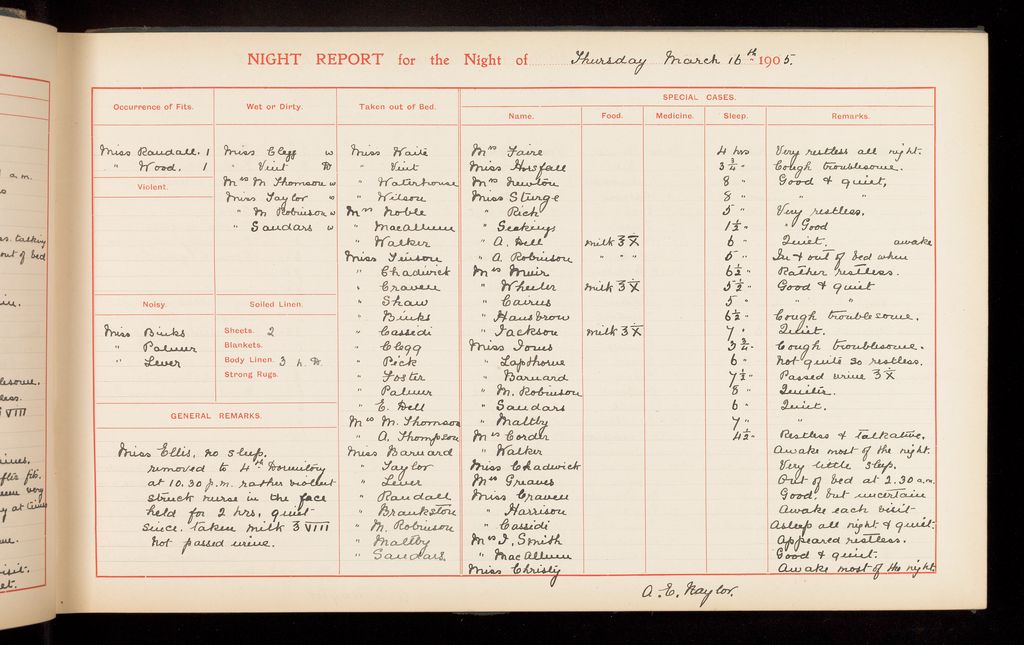 NIGHT REPORT for the Night of Thursday March 16th 1905.
Occurrence of Fits.
Miss Randall. 1
" Wood. 1
Violent.
Noisy.
Miss Binks
" Palmer
" Lever
Wet or Dirty.
Miss Clegg w
" Vint
Mrs M Thomson w
Miss Taylor w
" M. Robinson w
" Sandars w
Soiled Linen.
Sheets. 2
Blankets.
Body Linen. 3
Strong Rugs.
GENERAL REMARKS.
Miss Ellis, no sleep.
removed to 4th Dormitory
at 10.30 p.m. rather violent
struck nurse in the face
held for 2 hrs, quiet
since. taken milk ℥ VIII
not passed urine.
Taken out of Bed.
Miss Waite
" Vint
" Waterhouse
" Wilson
Mrs Noble
" MacAllum
" Walker
Miss Tenison
" Chadwick
" Craven
" Shaw
" Binks
" Cassidi
" Clegg
" Pick
" Foster
" Palmer
" E. Dell
Mrs M. Thomson
" A. Thompson
Miss Barnard
" Taylor
" Lever
" Randall
" Brankston
" M. Robinson
" Maltby
" Sandars.
SPECIAL CASES.
Name. Food. Medicine. Sleep. Remarks.
Mrs Faire 4 hrs Very restless all night.
Miss Horsfall 3 3/4 " Cough troublesome.
Mrs Newton 8 " Good & quiet,
Miss Sturge 8 " " "
" Pick 5 " Very restless.
" Geakings 1 1/2 " " Good
" A. Dell milk ℥ X 6 " Quiet. awake
" A. Robinson " " " 5 " In & out of bed when
Mrs Muir 6 1/2 " Rather restless.
" Wheeler milk ℥ X 5 1/2 " Good & quiet
" Cairns 5 " " "
" Hansbrow 6 1/2 " Cough troublesome.
" Jackson milk ℥ X 7 " Quiet.
Miss Jones 3 3/4 " Cough troublesome.
" Lapthorne 6 " Not quite so restless.
" Barnard 7 1/2 " Passed urine ℥ X
" M. Robinson 8 " Quieter.
" Sandars 6 " Quiet.
" Maltby 7 " "
Mrs Corder 4 1/2 " Restless & talkative.
" Walker Awake most of the night.
Miss Chadwick Very little sleep.
Mrs Greaves Out of bed at 2.30 a.m.
Miss Craven Good, but uncertain
" Harrison Awake each visit
" Cassidi Asleep all night & quiet.
Mrs J. Smith Appeared restless.
" MacAllum Good & quiet.
Miss Christy Awake most of the night
A. E. Naylor.